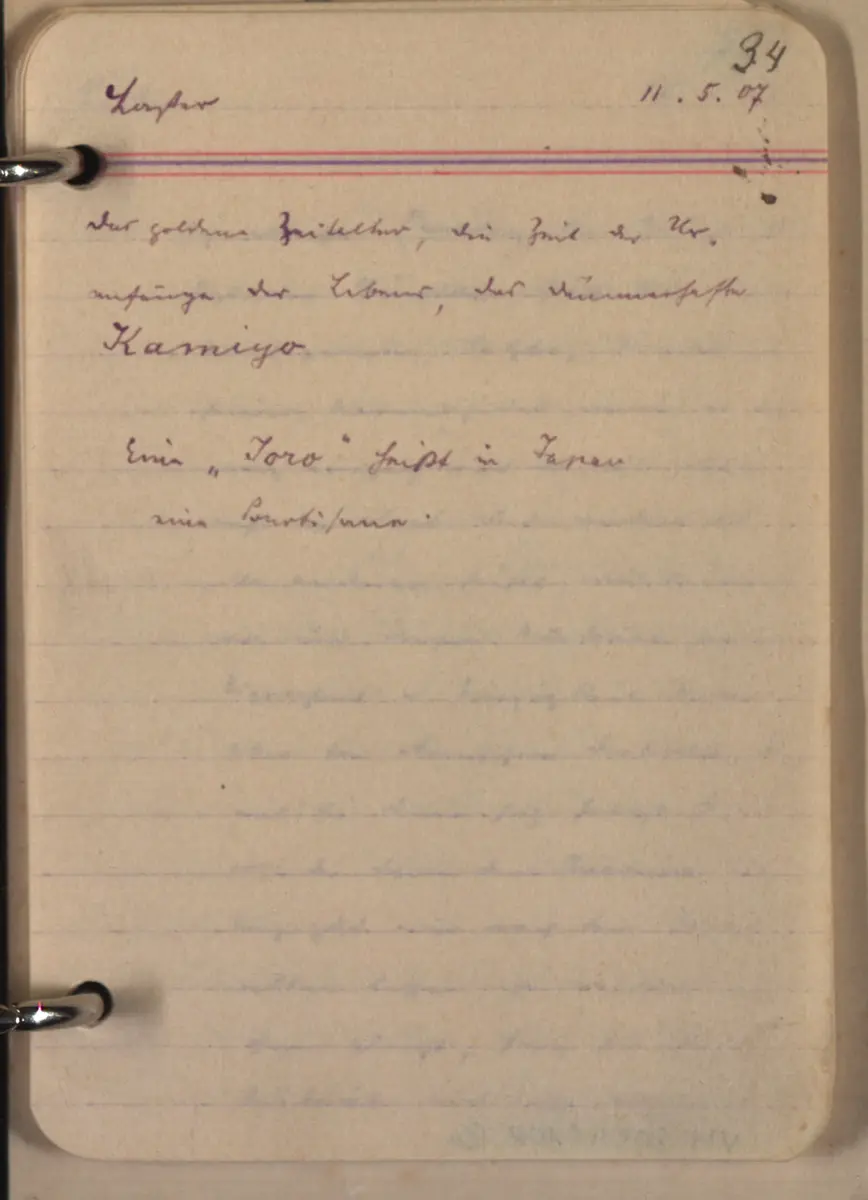 34
11. 5. 07
Das goldene Zeitalter, die Zeit der Ur-
anfänge des Lebens, das dämmerhafte
Kamiyo
Eine „Joro“ heißt in Japan
eine Courtisane.